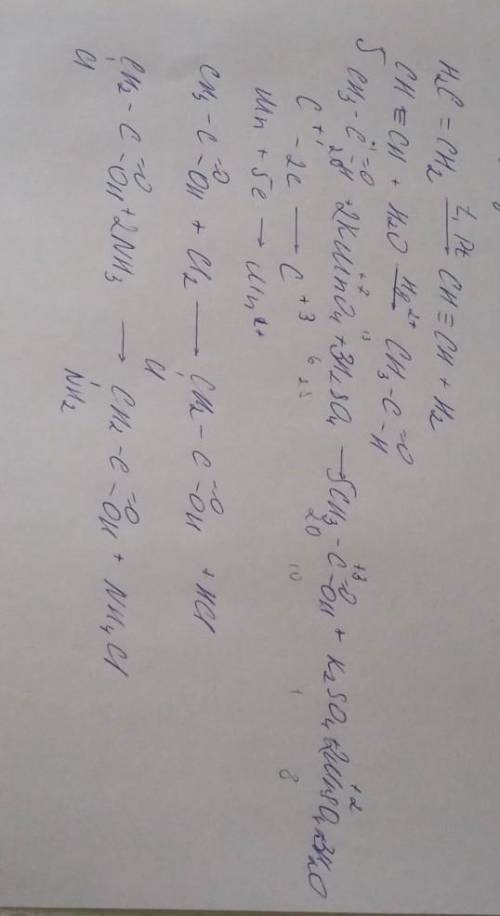 H2C = CH2 —t, Pt→ CH ≡ CH + H2
CH ≡ CH + H2O —Hg2+→ CH3 - C =O - H
5 CH3 - C+1 =O - H + 2KMnO4 + 3H2SO4 → 5CH3 - C+3 =O - OH + K2SO4 + 2MnSO4 + 3H2O
C+1 - 2e → C+3
Mn + 5e → Mn2+
CH3 - C =O - OH + Cl2 → CH2 - C =O - OH + HCl
Cl
CH2 - C =O - OH + 2NH3 → CH2 - C =O - OH + NH4Cl
Cl NH2